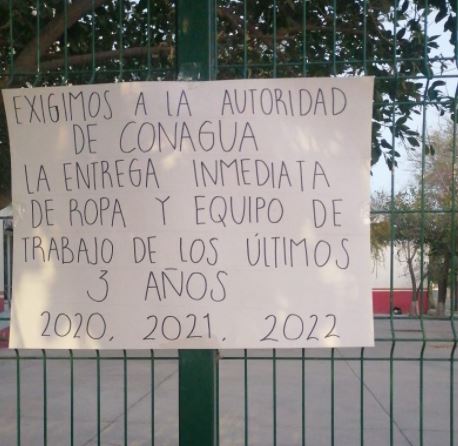 EXIGIMOS A LA AUTORIDAD
DE CONAGUA
LA ENTREGA INMEDIATA
DE ROPA Y EQUIPO DE
TRABAJO DE LOS ÚLTIMOS
3 AÑOS
2020, 2021, 2022